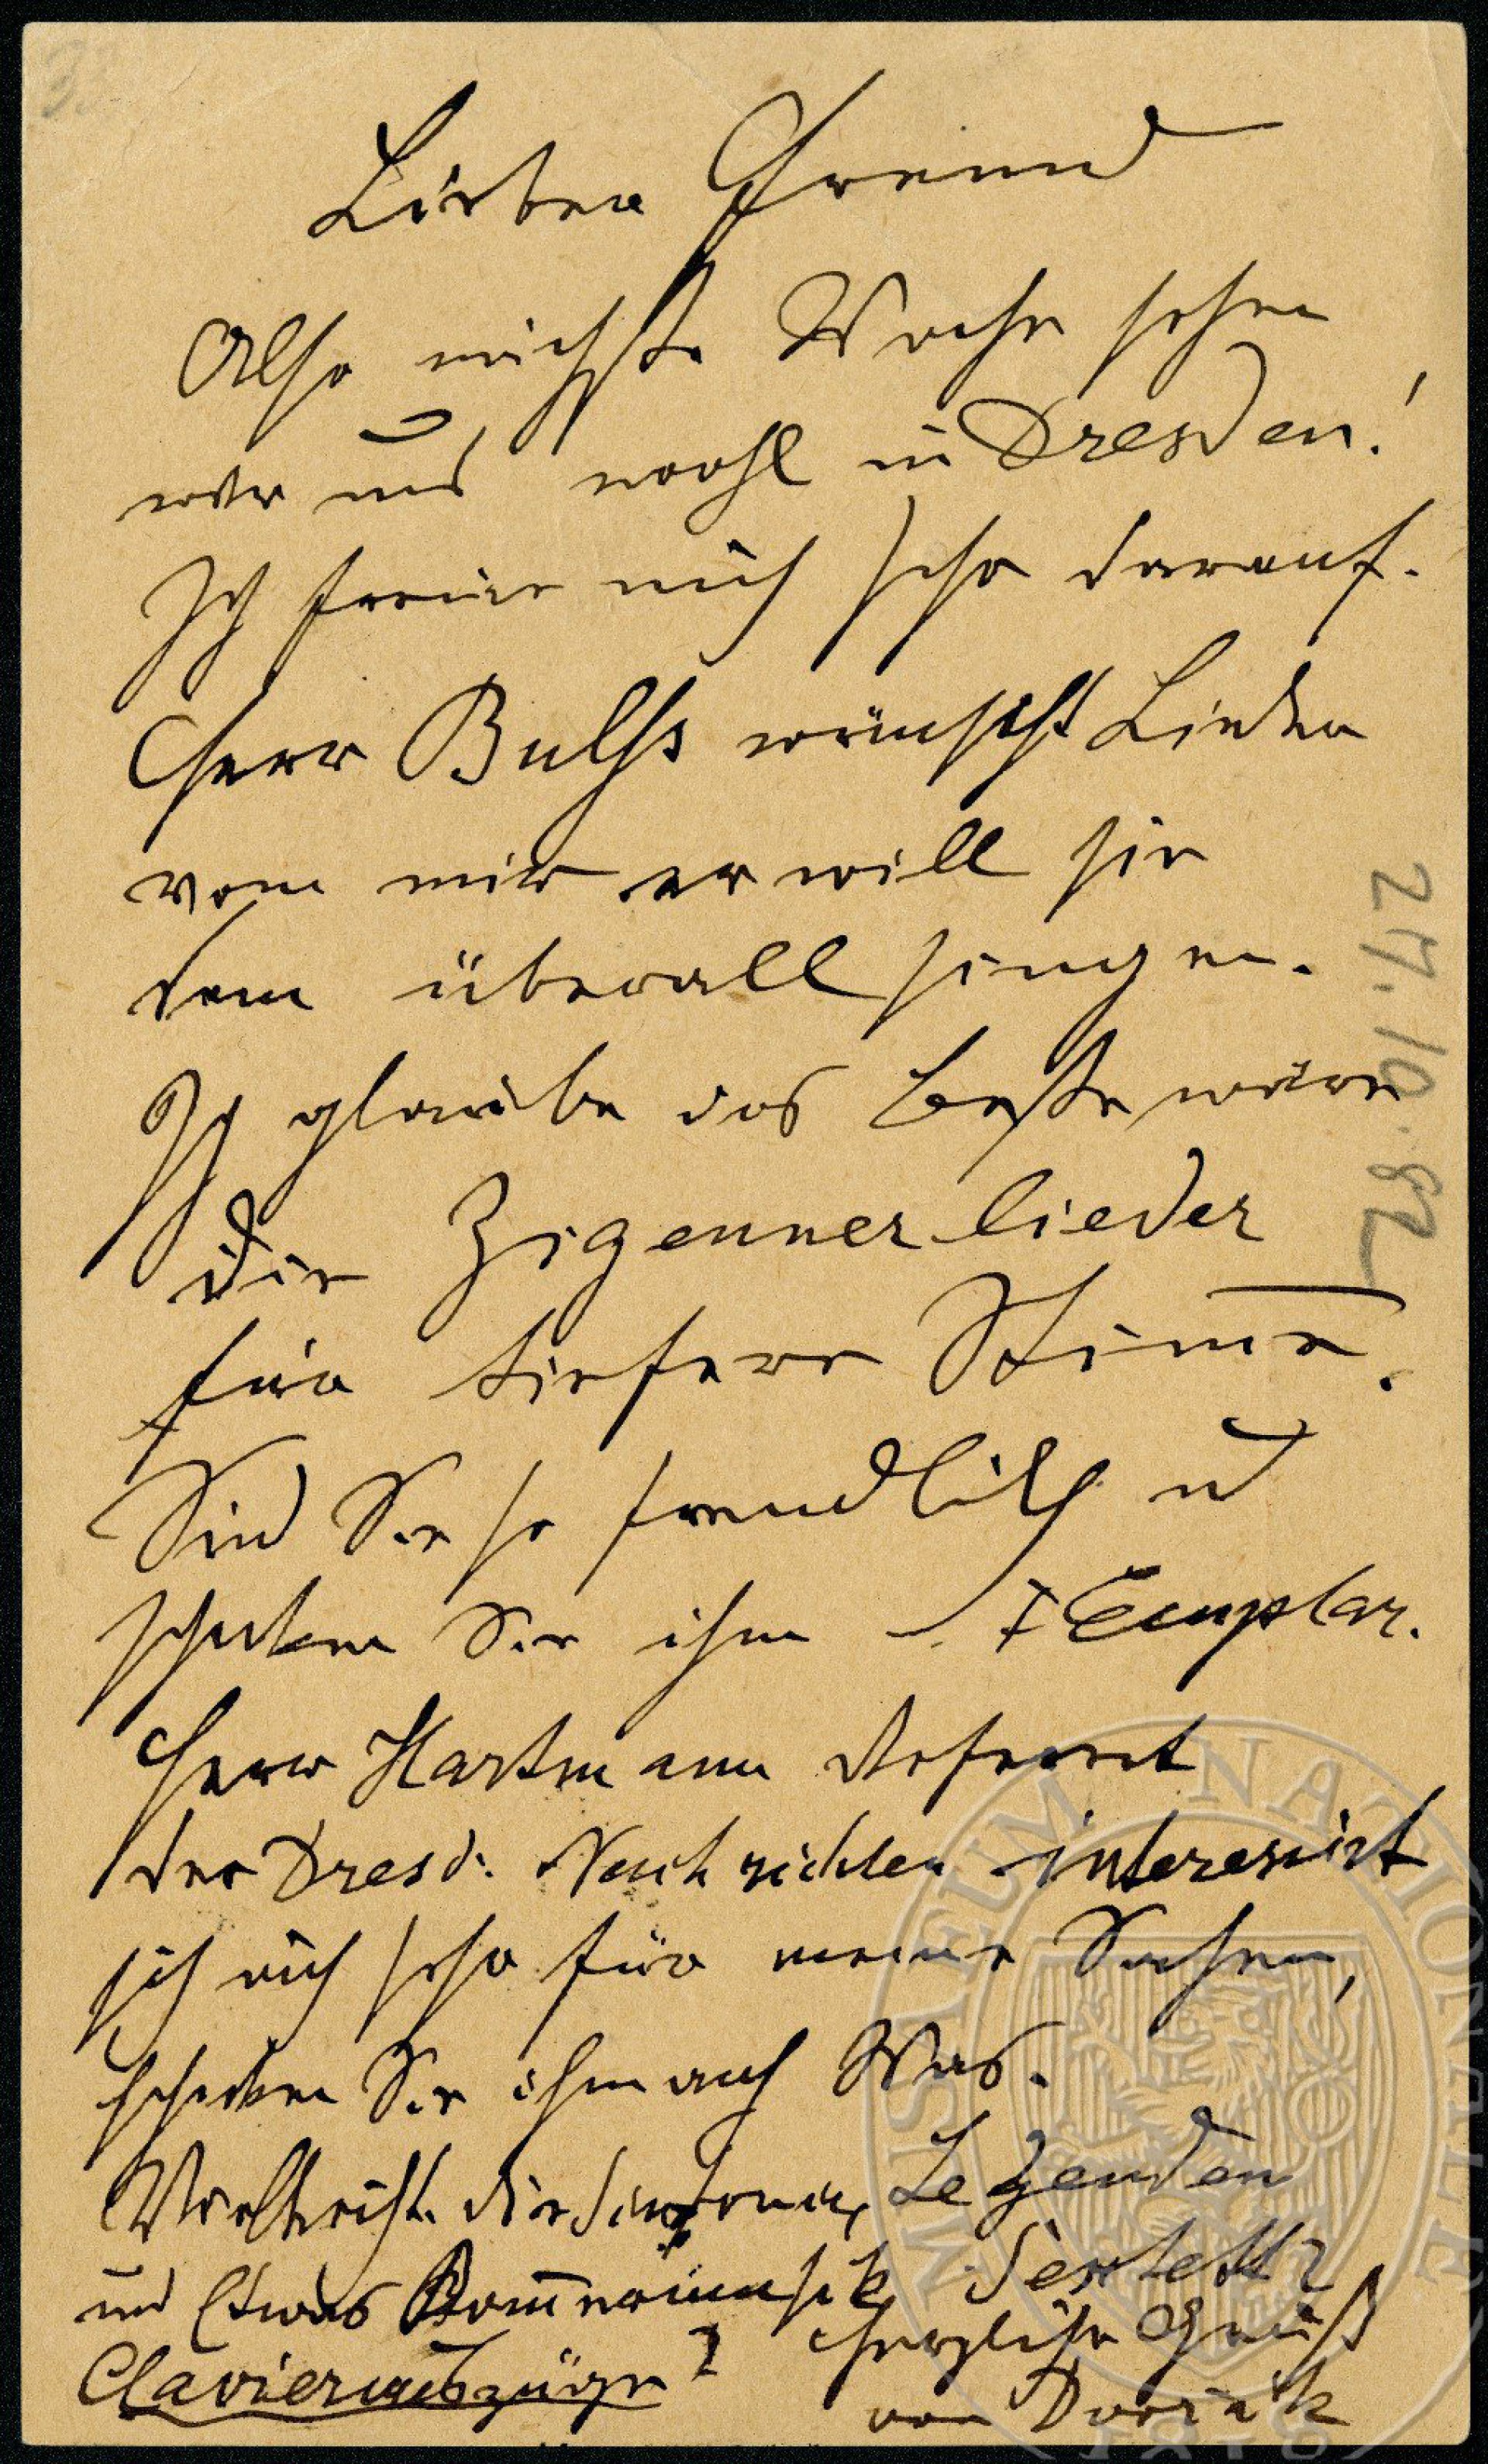 Lieber Freund
Also nächste Woche sehen
wir uns wohl in Dresden!
Ich freue mich sehr darauf.
Herr Bulss wünscht Lieder
von mir er will sie
dann überall singen.
Ich glaube das beste wäre
die Zigeunerlieder
für tiefere Stim̄e.
Sind Sie so freundlich u
schicken Sie ihm 1 Exemplar.
Herr Hartmann Referent
der Dresd. Nachrichten interessirt
sich auch sehr für meine Sachen,
schicken Sie ihm auch Was.
Vielleicht die Sinfonie, Legenden
und Etwas Kam̄ermusik Sextett?
Clavierauszüge? Herzliche Grüß
von Dvořák
24.10.82
MUSAEUM NATIONALE